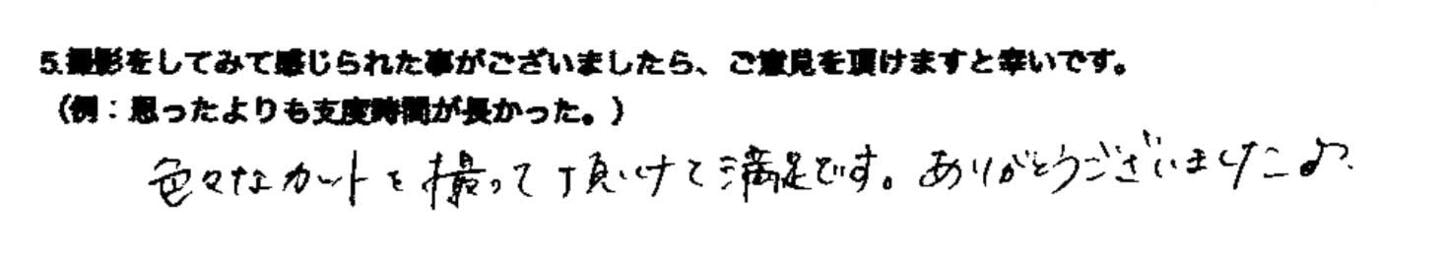 5.撮影をしてみて感じられた事がございましたら、ご意見を頂けますと幸いです。
（例：思ったよりも支度時間が長かった。）
色々なカットを撮って頂いけて満足です。ありがとうございました♪